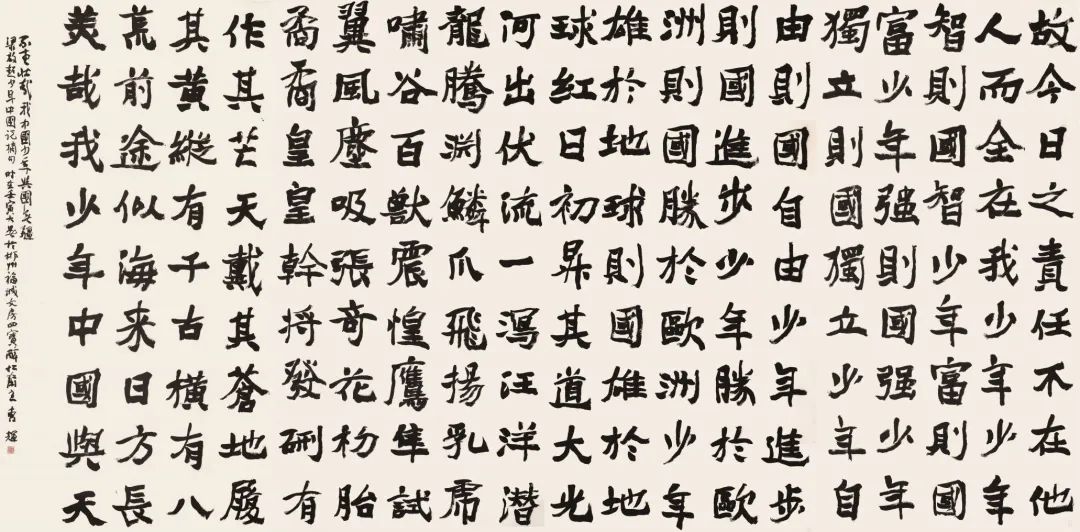 故今日之責任不在他
人而全在我少年少年
智則國智少年富則國
富少年强則國强少年
獨立則國獨立少年自
由則國自由少年進步
則國進步少年勝於歐
洲則國勝於歐洲少年
雄於地球則國雄於地
球紅日初昇其道大光
河出伏流一瀉汪洋潜
龍騰淵鱗爪飛揚乳虎
嘯谷百獸震惶鷹隼試
翼風塵吸張奇花初胎
矞矞皇皇幹將發硎有
作其芒天戴其蒼地履
其黃縱有千古橫有八
荒前途似海来日方長
美哉我少年中國與天
不老壯哉我中國少年與國無疆
梁啟超少年中國說摘句 時在壬寅大暑於郴州福城文房四寶